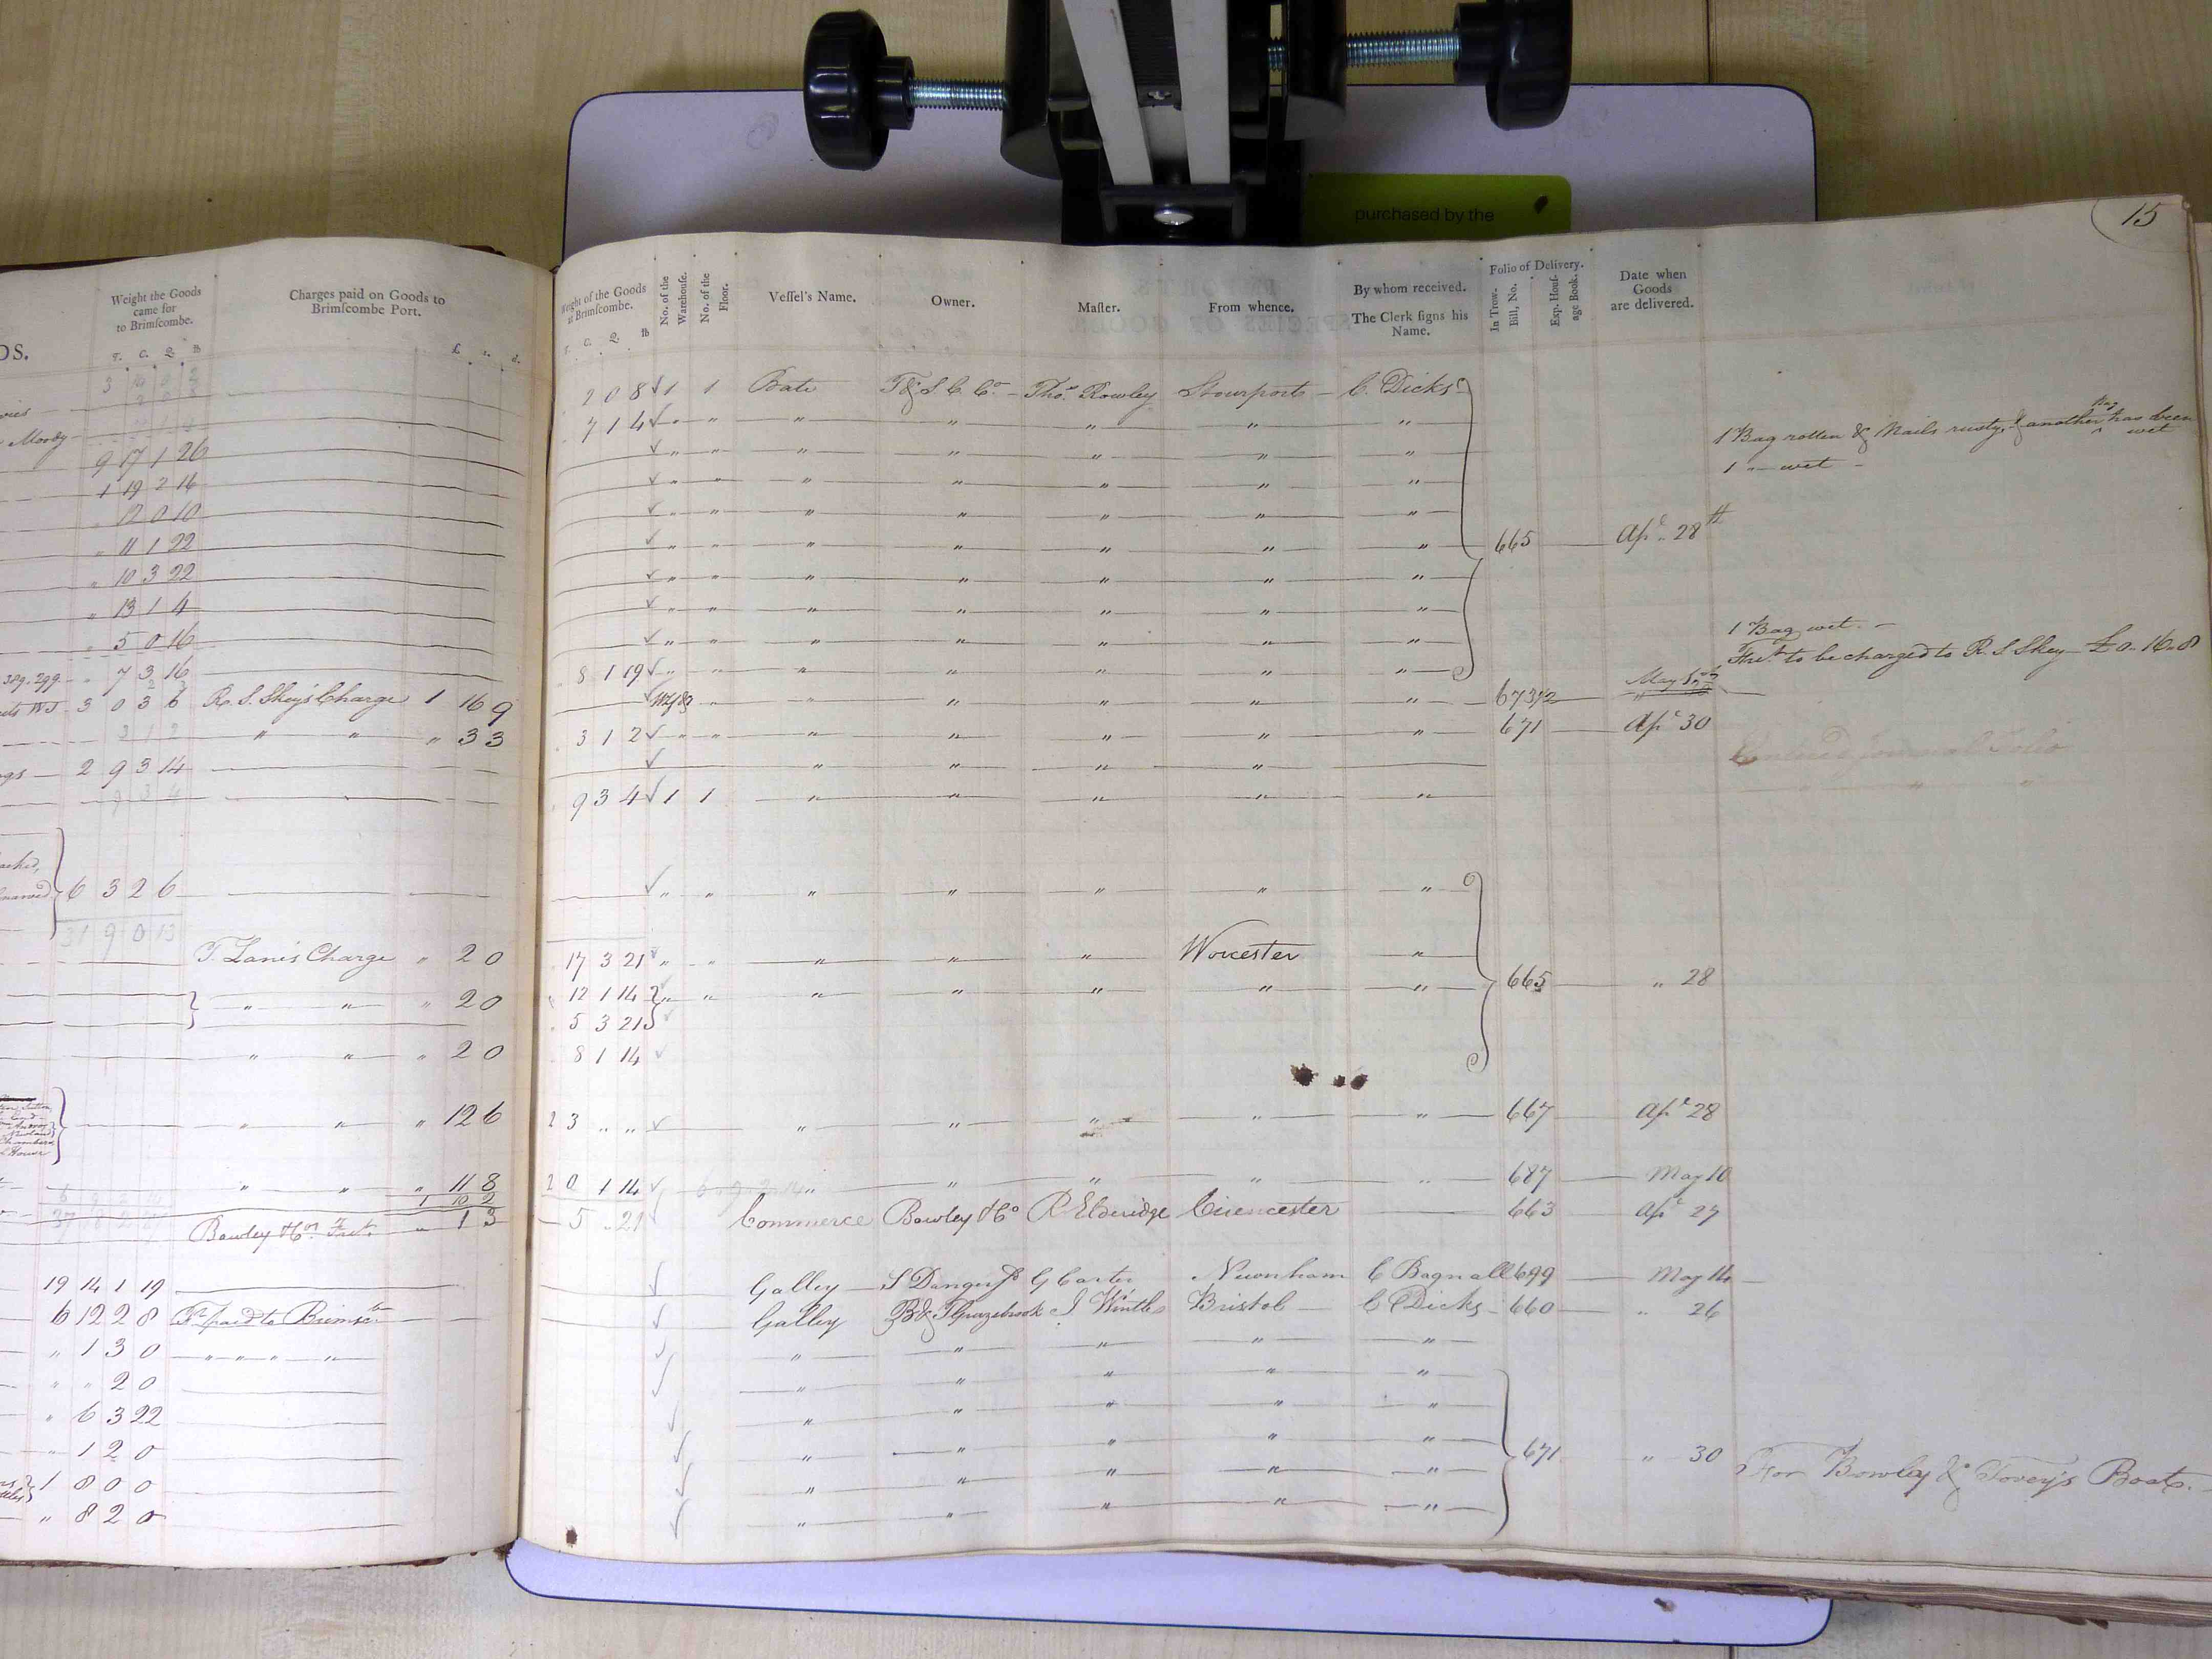 purchased by the
15
DS.
Weight the Goods
came for
to Brimſcombe.
T. C. Q. lb
Charges paid on Goods to
Brimſcombe Port.
£. s. d.
Moody
9 17 1 26
1 19 2 14
" 12 0 10
" 11 1 22
" 10 3 22
" 13 1 4
" 5 0 16
" 7 3 16
3 0 3 6 R. S. Skey's Charge 1 16 9
" " " 3 3
2 9 3 14
6 3 2 6
31 9 0 13
T. Lane's Charge " 2 0
" " " 2 0
" " " 2 0
" " " 12 6
" " " 11 8
1 10 2
Bowley & Co. Frt. " 1 3
19 14 1 19
6 12 2 8 Frt. paid to Brimsc
" 1 3 0 " " " "
" " 2 0
" 6 3 22
" 1 2 0
1 8 0 0
" 8 2 0
Weight of the Goods
at Brimſcombe.
T. C. Q. lb
No. of the
Warehouſe.
No. of the
Floor.
Veſſel's Name.
Owner.
Maſter.
From whence.
By whom received.
The Clerk ſigns his
Name.
Folio of Delivery.
In Trow-
Bill, No.
Exp. Houſ-
age Book.
Date when
Goods
are delivered.
2 0 8 ✓ 1 1 Bate T & S C Co. Thos. Rowley Stourport C. Dicks
7 1 4 ✓ " " " " " " "
1 Bag rotten & Nails rusty, & another Bag has been wet
✓ " " " " " " "
1 " wet
✓ " " " " " " "
✓ " " " " " " "
✓ " " " " " " " 665 Apl. 28th
✓ " " " " " " "
✓ " " " " " " "
✓ " " " " " " "
1 Bag wet.
8 1 19 ✓ " " " " " " "
Frt. to be charged to R. S. Skey £0.16.8
✓ " " " " " " 673 May
3 1 2 ✓ " " " " " " " 671 Apl. 30
✓ " " " "
9 3 4 ✓ 1 1 " " " " "
✓ " " " " " " "
17 3 21 " " " " " Worcester "
12 1 14 " " " " " " " 665 " 28
5 3 21
8 1 14 ✓
2 3 " " ✓ " " " " " 667 Apl. 28
2 0 1 14 ✓ " " " " " 687 May 10
5 " 21 Commerce Bowley & Co. R Elderidge Cirencester 663 Apl. 27
✓ Galley S Danger G Carter Newnham C Bagnall 699 May 14
✓ Galley B & T Grazebrook J Wintle Bristol C Dicks 660 " 26
✓ " " " " "
✓ " " " " "
✓ " " " " "
✓ " " " " " 671 " 30 For Bowley & Tovey's Boats.
✓ " " " " "
✓ " " " " "